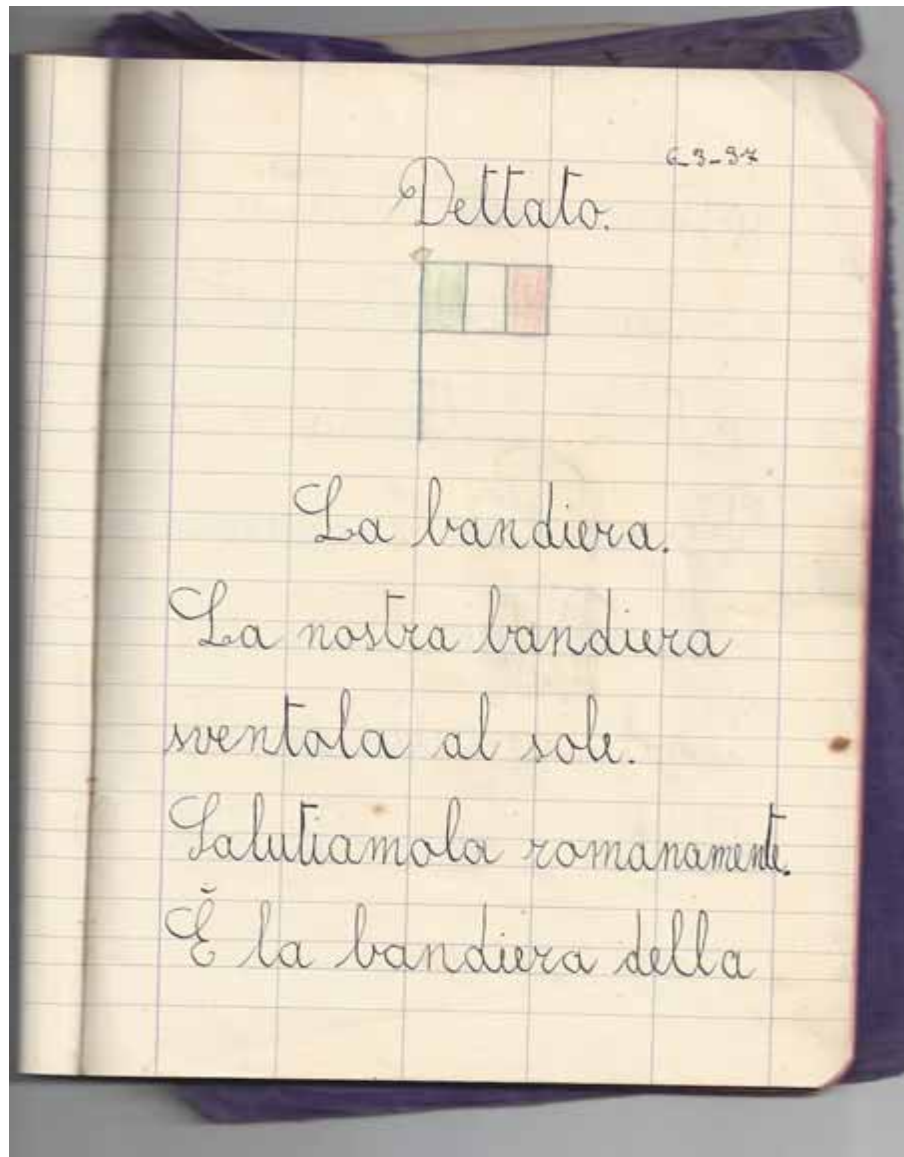 6-3-37
Dettato.
La bandiera.
La nostra bandiera
sventola al sole.
Salutiamola romanamente.
È la bandiera della